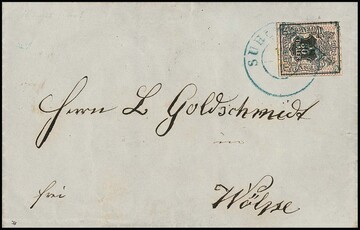 SUH
Herrn L Goldschmidt
in
frei
Wölpe